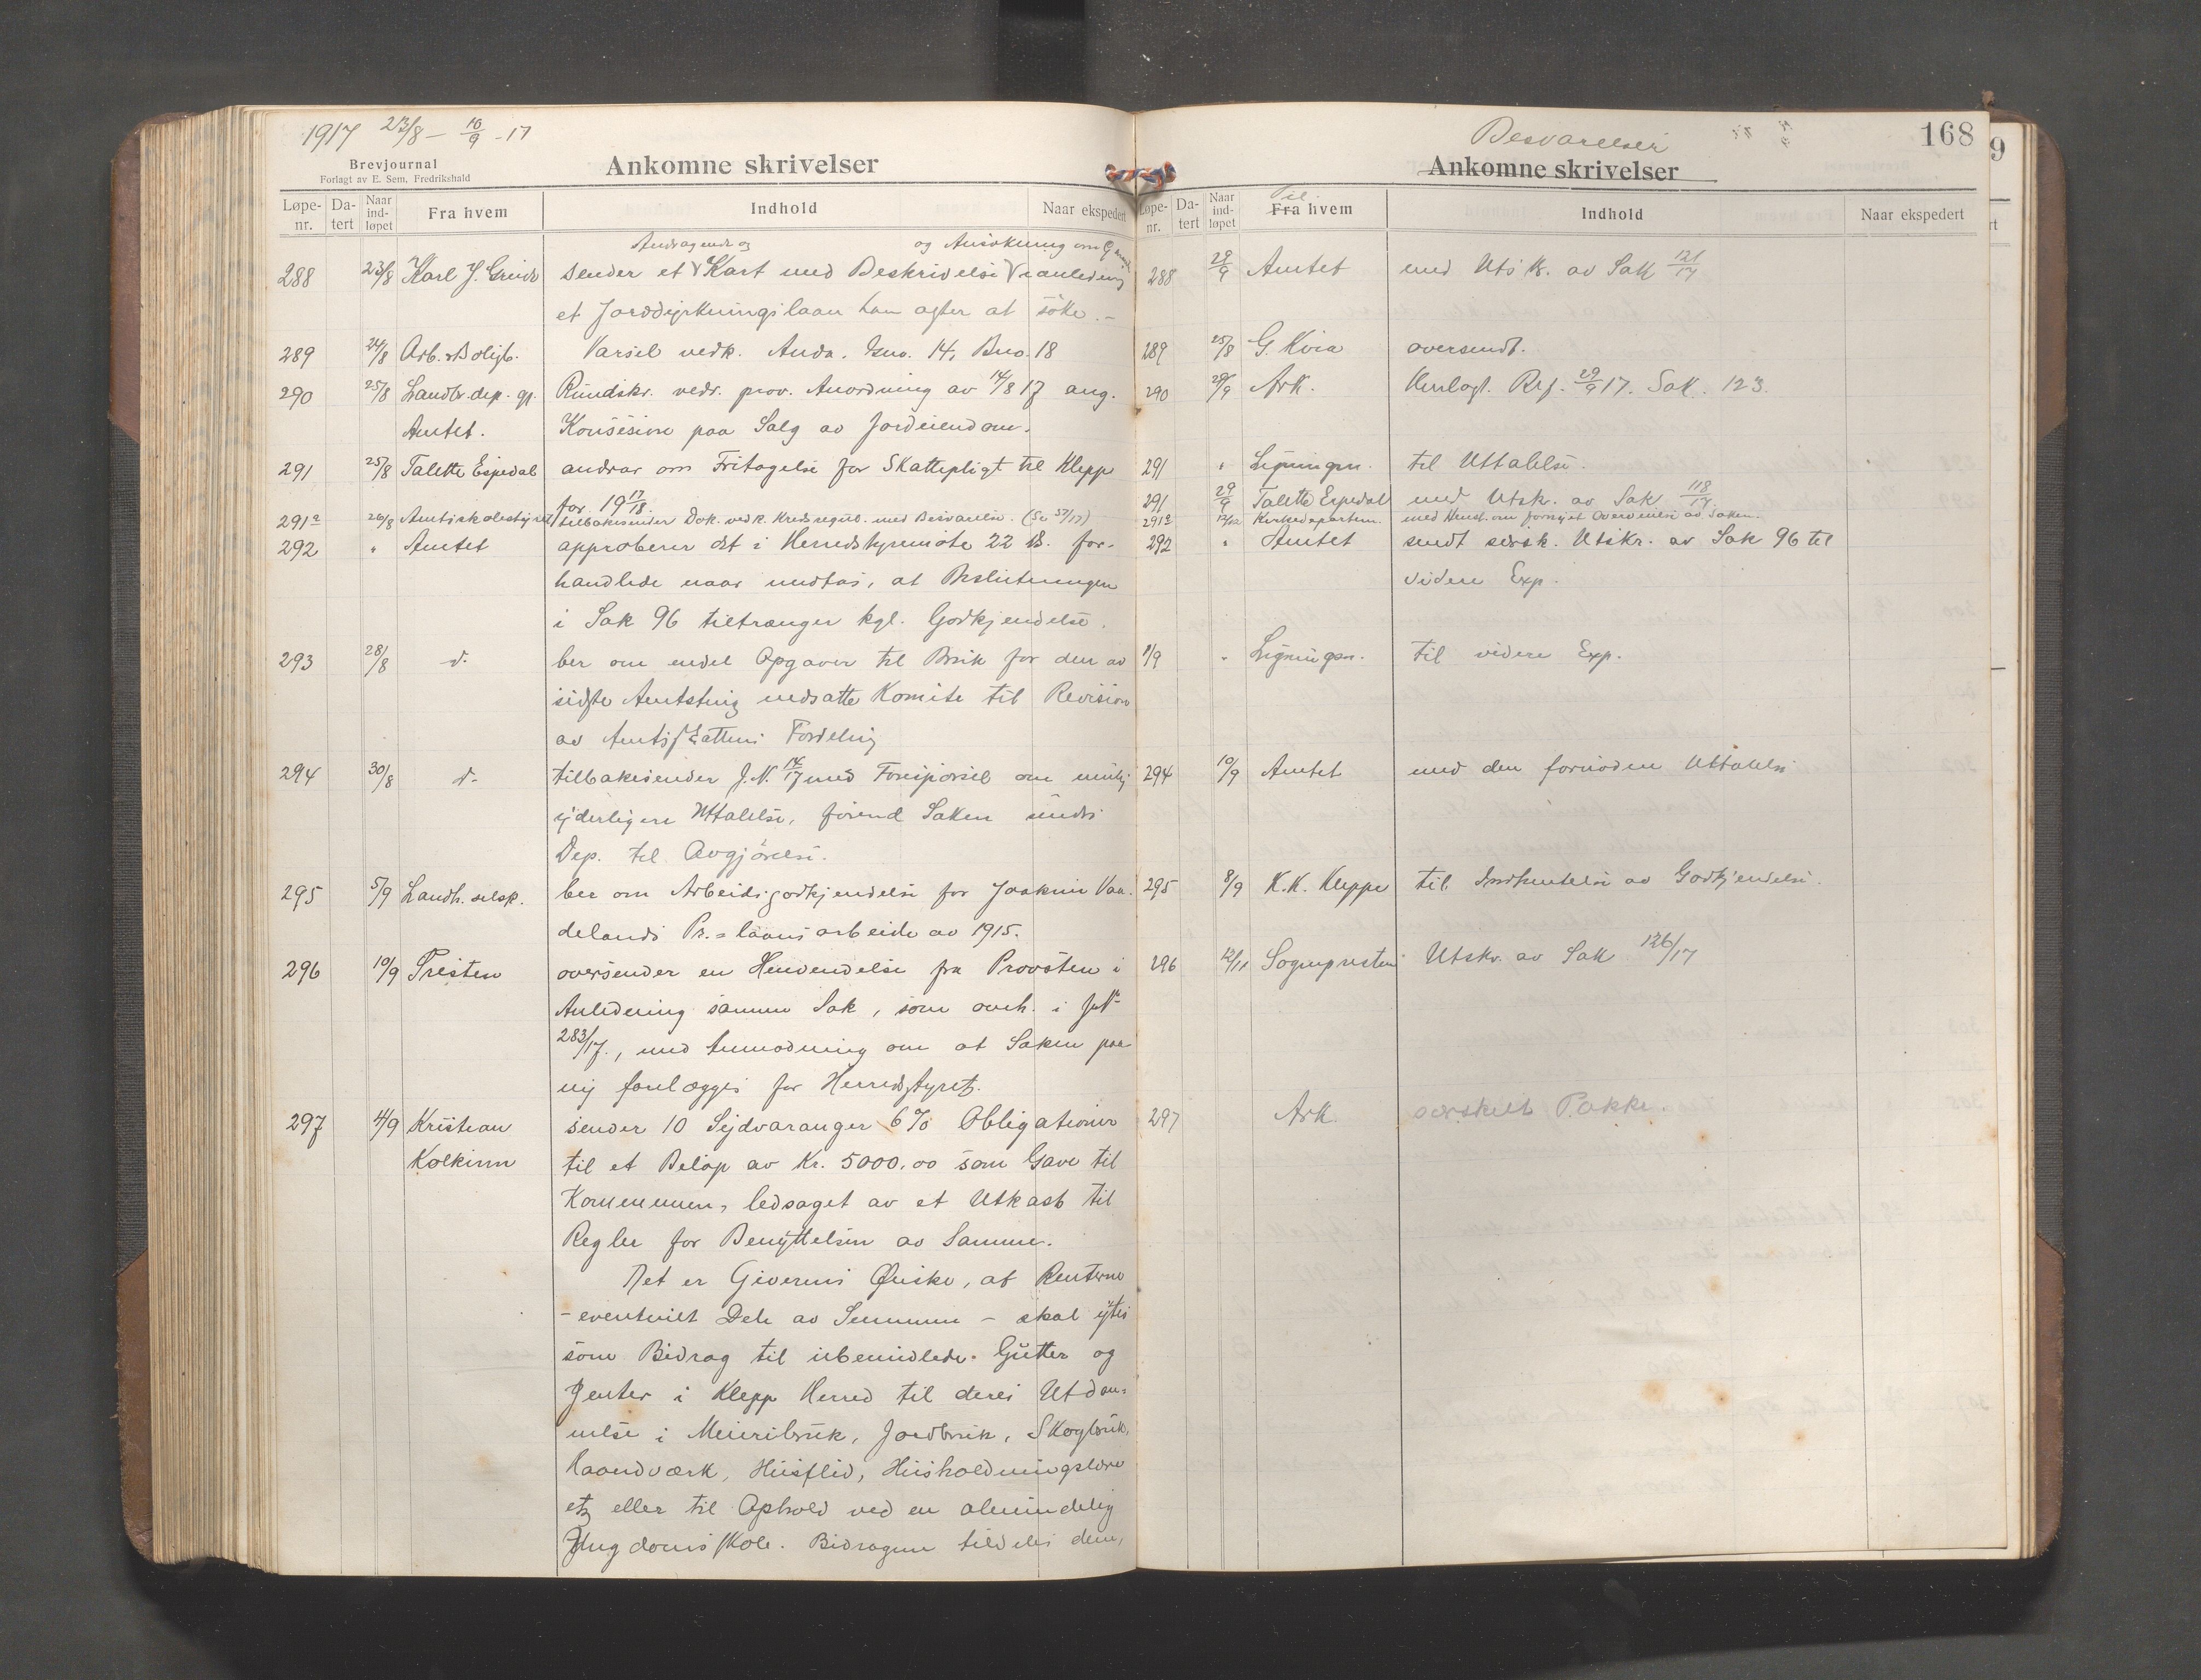 1917 23/8 – 10/9 - 17
Brevjournal
Forlagt av E. Sem, Fredrikshald
Ankomne skrivelser
Løpe-nr. Da-tert Naar ind-løpet Fra hvem Indhold Naar ekspedert
Andragende og og Ansøkning om
288 23/8 Karl J. sender et Kart med Beskrivelse i anledning
et Jorddyrkningslaan han agter at søke.–
289 24/8 Arb. & Boligb. Varsel vedk. Anda. Gno. 14, Bno. 18
290 25/8 Landbr. dep. gj. Rundskr. vedr. prov. Anordning av 14/8 17 ang.
Amtet. Konsesion paa Salg av Jordeiendom.
291 25/8 Talette Espedal andrar om Fritagelse for Skattepligt til Klepp
for 19 17/18.
291a 26/8 Amtsskolestyret tilbakesender Dok. vedk. Kredsregul. med Besvarelse. (Se 57/17)
292 " Amtet approberer det i Herredstyremøte 22 ds. for-
handlede naar undtas, at Beslutningen
i Sak 96 tiltrænger kgl. Godkjendelse.
293 28/8 d. ber om endel Opgaver til Bruk for den av
sidste Amtsting nedsatte Komite til Revision
av Amtsskattens Fordeling
294 30/8 d- tilbakesender J.N. 14/17 med Forespørsel om mulig
yderligere Uttalelse, førend Saken sendes
Dep. til Avgjørelse.
295 5/9 Landh. selsk. ber om Arbeidsgodkjendelse for Joakim Vaa-
delands Pr.=laans arbeide av 1915.
296 10/9 Presten oversender en Henvendelse fra Provsten i
Anledning samme Sak, som omh. i JN
283/17., med Anmodning om at Saken paa
ny forelægges for Herredstyret.
297 4/9 Kristian sender 10 Sydvaranger 6% Obligationer
Kolkinn til et Beløp av Kr. 5000.00 som Gave til
Kommunen, ledsaget av et Utkast til
Regler for Benyttelsen av Samme.
Det er Giverens Ønske, at Renterne
– eventuelt Dele av Summen – skal ytes
som Bidrag til ubemidlede Gutter og
Jenter i Klepp Herred til deres Utdan-
nelse i Meieribruk, Jordbruk, Skogbruk,
Haandværk, Husflid, Husholdningslære
etz eller til Ophold ved en almindelig
Ungdomsskole. Bidragene tildeles dem,
168
Besvarelser
Ankomne skrivelser
Løpe-nr. Da-tert Naar ind-løpet Til Fra hvem Indhold Naar ekspedert
288 29/9 Amtet med Utsk. av Sak 121/17
289 25/8 G. Kvia oversendt.
290 29/9 Ark. Henlagt. Ref. 29/9 17. Sak 123.
291 " Ligningsn. til Uttalelse.
291 29/9 Talette Espedal med Utsk. av Sak 118/17
291a 12/12 Kirkedepartem. med Henst. om fornyet Overveielse av Saken.
292 " Amtet sendt særsk. Utskr. av Sak 96 til
videre Exp.
1/9 " Ligningsn. til videre Exp.
294 10/9 Amtet med den fornødne Uttalelse
295 8/9 K.K. Kleppe til Indhentelse av Godkjendelse.
296 12/11 Sognepresten Utskr. av Sak 126/17
297 Ark. særskilt Pakke.
9